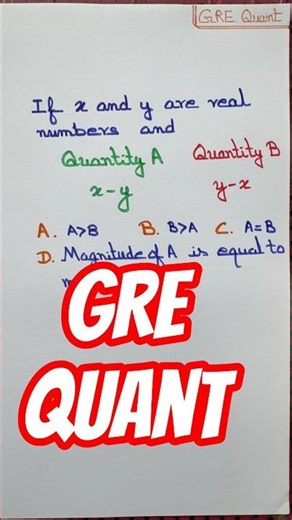 GRE Quant
If x and y are real
numbers and
Quantity A Quantity B
x-y y-x
A. A>B B. B>A C. A=B
D. Magnitude of A is equal to
GRE
QUANT